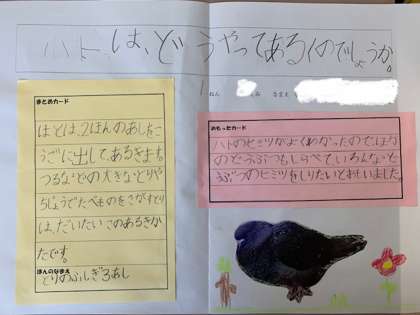 ハトは、どうやってあるくのでしょうか。
1ねん くみ なまえ
まとめカード
はとは、2ほんのあしをこ
うごに出して、あるきます。
つるなどの大きなとりや
ちじょうでたべものをさがすとり
は、だいたいこのあるきか
たです。
ほんのなまえ
とりのふしぎ3あし
おもったカード
ハトのヒミツがよくわかったのでほか
のどうぶつもしらべていろんなど
うぶつのヒミツをしりたいとおもいました。